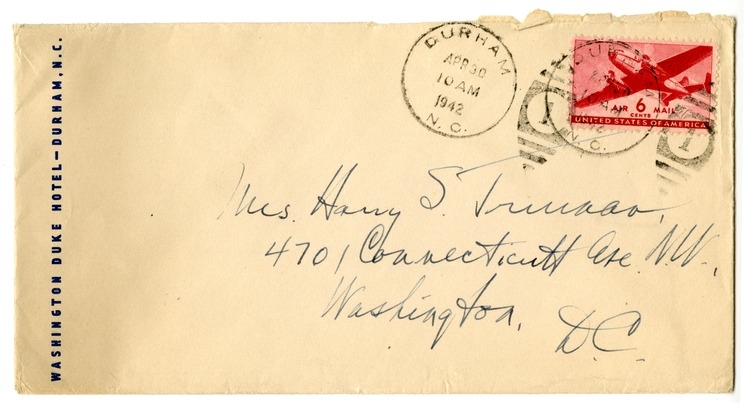 WASHINGTON DUKE HOTEL—DURHAM, N.C.
DURHAM
APR 30
10 AM
1942
N. C.
AIR 6 MAIL
CENTS
UNITED STATES OF AMERICA
1
1
Mrs. Harry S. Truman,
4701 Connecticutt Ave. N.W.,
Washington,
D.C.